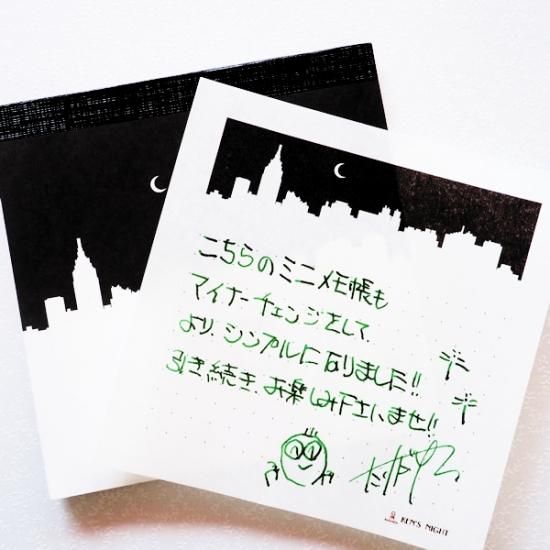 こちらのミニメモ帳も
マイナーチェンジをして、
より、シンプルになりました!!
引き続き、お楽しみ下さいませ!!
KEN'S NIGHT